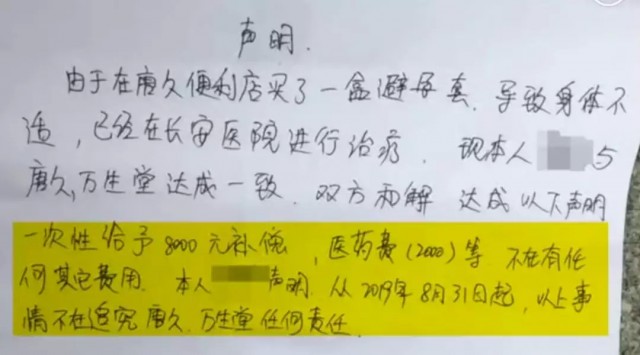 声明.
由于在唐久便利店买了一盒避孕套.导致身体不
适,已经在长安医院进行治疗.现本人 5
唐久,万生堂达成一致.双方和解 达成以下声明
一次性给予8000元补偿,医药费(2000)等 不在有任
何其它费用.本人 声明.从2019年8月31日起,以上事
情不在追究唐久.万生堂任何责任.